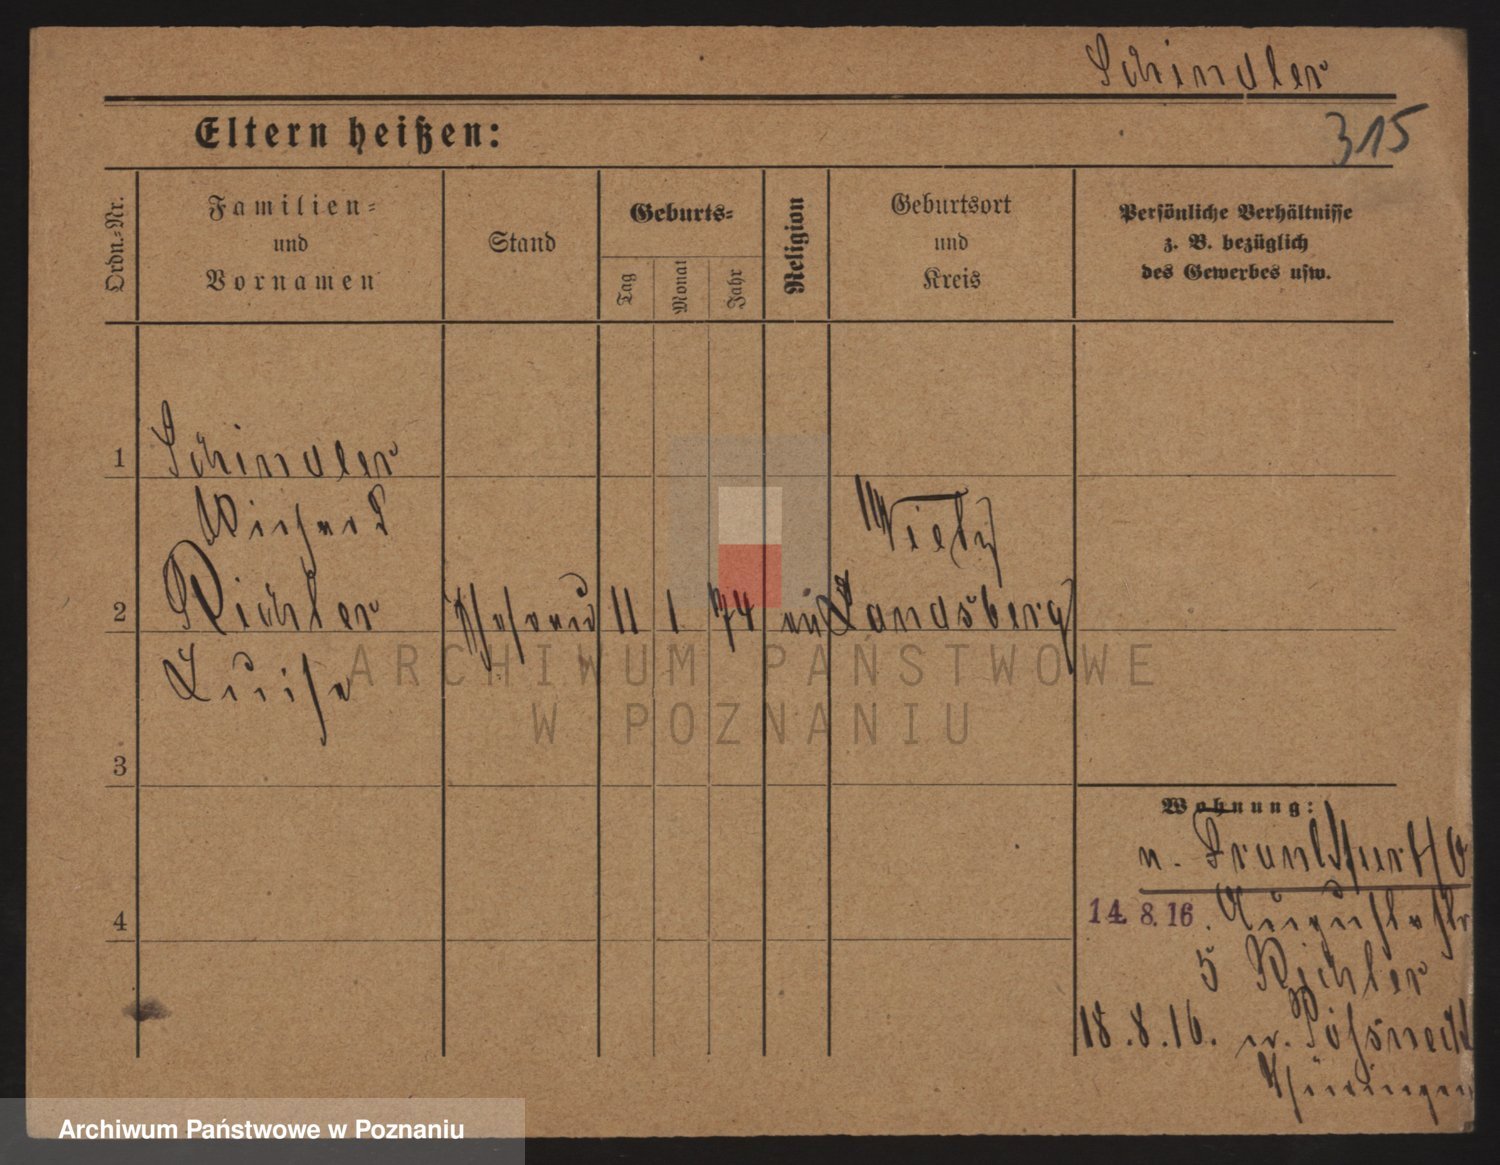 Schindler
315
Eltern heißen:
Ordn.-Nr.
Familien-
und
Vornamen
Stand
Geburts-
Tag
Monat
Jahr
Religion
Geburtsort
und
Kreis
Persönliche Verhältnisse
z. B. bezüglich
des Gewerbes usw.
1
Schindler
Vietz
2
Richler
11 1 74
Landsberg
Luise
3
4
Wohnung:
n. Frankfurt/O
14. 8. 16. Augustastr
5 Richler
18.8.16. n. Pößneck
Thüringen
ARCHIWUM PAŃSTWOWE
W POZNANIU
Archiwum Państwowe w Poznaniu